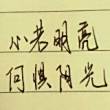 小若明亮
何惧阳光